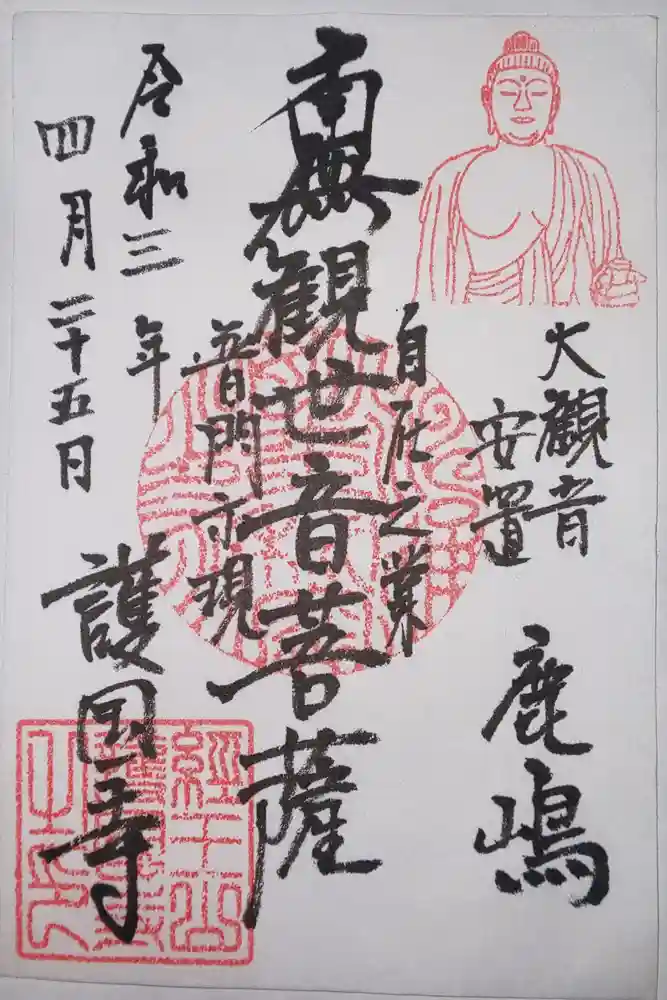 大觀音
安置
鹿嶋
自在之業
南無観世音菩薩
普門示現
令和三年
四月二十五日
護国寺